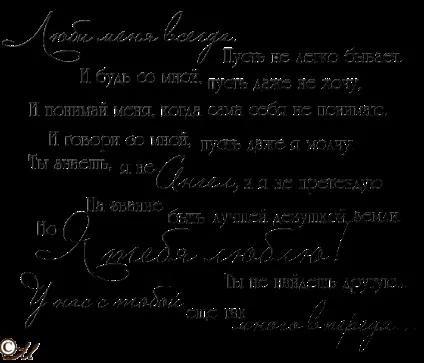 Люби меня всегда.
Пусть не легко бывает.
И будь со мной, пусть даже не хочу,
И понимай меня, когда сама себя не понимаю.
И говори со мной, пусть даже я молчу.
Ты знаешь, я не Ангел, и я не претендую
На звание быть лучшей девушкой земли
Но Я тебя люблю!
Ты не найдешь другую...
У нас с тобой еще так много впереди...